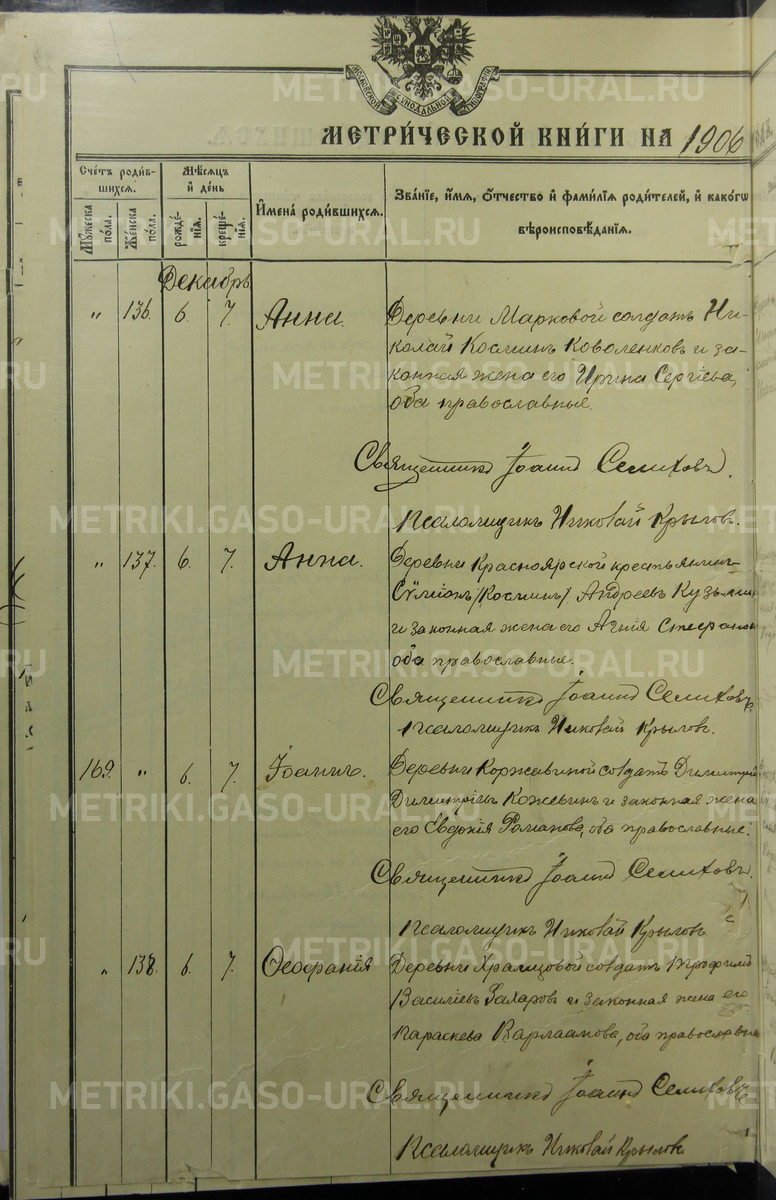 МОСКОВСКОЙ СѴНОДАЛЬНОЙ ТИПОГРАФІИ
МЕТРИ́ЧЕСКОЙ КНИ́ГИ НА 1906
Сче́тъ роди́в-
шихся.
Мѣ́сяцъ
и҆ де́нь
И҆мена̀ роди́вшихся.
Зва́нїе, и҆́мя, ѻ҆́тчество и҆ фами́лїя роди́телей, и҆ како́гѡ
вѣроисповѣ́данїя.
Мꙋ́жеска по́ла.
Же́нска по́ла.
рожде́нїя.
креще́нїя.
Декабрь
„ 136. 6. 7. Анна.
Деревни Марковой солдатъ Ни-
колай Косминъ Коваленковъ и за-
конная жена его Ирина Сергіева,
оба православные.
Священникъ Іоаннъ Селиховъ.
Псаломщикъ Николай Крыловъ.
„ 137. 6. 7. Анна.
Деревни Красноярской крестьянинъ
Сѵмеонъ /Косминъ/ Андреевъ Кузьмин
и законная жена его Агнія Стефанов
оба православные.
Священникъ Іоаннъ Селиховъ
Псаломщикъ Николай Крыловъ.
169. „ 6. 7. Іоаннъ.
Деревни Коржавиной солдатъ Димитрій
Димитріевъ Кожевинъ и законная жена
его Евдокія Романова, оба православные.
Священникъ Іоаннъ Селиховъ.
Псаломщикъ Николай Крыловъ
„ 138. 6. 7. Ѳеофанія
Деревни Храмцовой солдатъ Трофимъ
Василіевъ Захаровъ и законная жена его
Параскева Варлаамова, оба православны
Священникъ Іоаннъ Селиховъ
Псаломщикъ Николай Крыловъ
METRIKI.GASO-URAL.RU